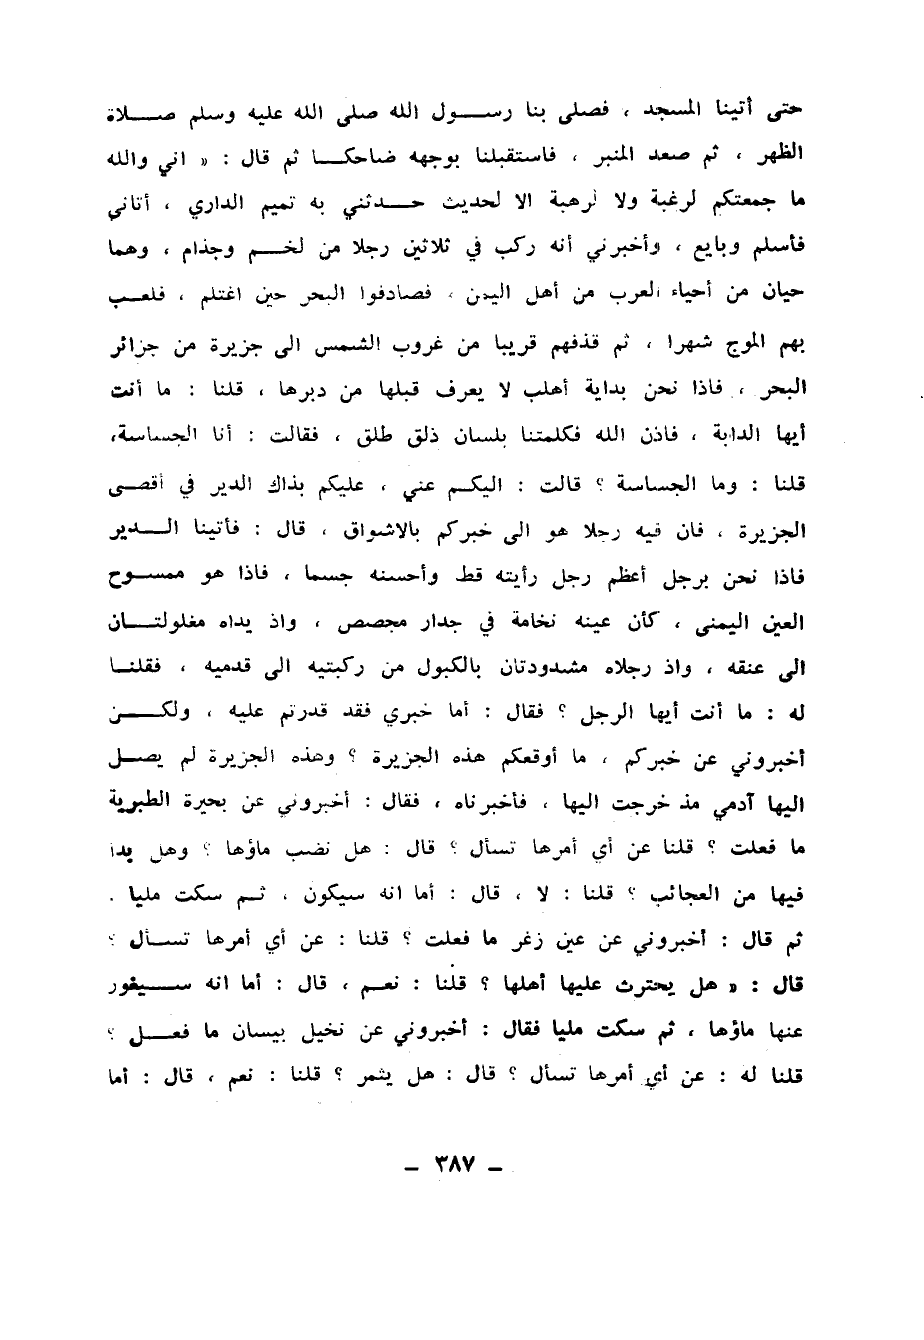 حتى أتينا المسجد ، فصلى بنا رســـول الله صلى الله عليه وسلم صـــلاة
الظهر ، ثم صعد المنبر ، فاستقبلنا بوجهه ضاحكـــا ثم قال : « اني والله
ما جمعتكم لرغبة ولا لرهبة الا لحديث حـــدثني به تميم الداري ، أتاني
فأسلم وبايع ، وأخبرني أنه ركب في ثلاثين رجلا من لخـــم وجذام ، وهما
حيان من أحياء العرب من أهل اليمن ، فصادفوا البحر حين اغتلم ، فلعـب
بهم الموج شهرا ، ثم قذفهم قريبا من غروب الشمس الى جزيرة من جزائر
البحر ، فاذا نحن بدابة أهلب لا يعرف قبلها من دبرها ، قلنا : ما أنت
أيها الدابة ، فاذن الله فكلمتنا بلسان ذلق طلق ، فقالت : أنا الجساسة،
قلنا : وما الجساسة ؟ قالت : اليكـم عني ، عليكم بذاك الدير في أقصـى
الجزيرة ، فان فيه رجلا هو الى خبركم بالاشواق ، قال : فأتينا الـــدير
فاذا نحن برجل أعظم رجل رأيته قط وأحسنه جسما ، فاذا هو ممســوح
العين اليمنى ، كأن عينه نخامة في جدار مجصص ، واذ يداه مغلولتـــان
الى عنقه ، واذ رجلاه مشدودتان بالكبول من ركبتيه الى قدميه ، فقلنـــا
له : ما أنت أيها الرجل ؟ فقال : أما خبري فقد قدرتم عليه ، ولكـــن
أخبروني عن خبركم ، ما أوقعكم هذه الجزيرة ؟ وهذه الجزيرة لم يصـــل
اليها آدمي مذ خرجت اليها ، فأخبرناه ، فقال : أخبروني عن بحيرة الطبرية
ما فعلت ؟ قلنا عن أي أمرها تسأل ؟ قال : هل نضب ماؤها ؟ وهل بدا
فيها من العجائب ؟ قلنا : لا ، قال : أما انه سيكون ، ثـم سكت مليا .
ثم قال : أخبروني عن عين زغر ما فعلت ؟ قلنا : عن أي أمرها تســأل ؟
قال : « هل يحترث عليها أهلها ؟ قلنا : نعـم ، قال : أما انه ســـيغور
عنها ماؤها ، ثم سكت مليا فقال : أخبروني عن نخيل بيسان ما فعـــل ؟
قلنا له : عن أي أمرها تسأل ؟ قال : هل يثمر ؟ قلنا : نعم ، قال : أما
– ٣٨٧ –